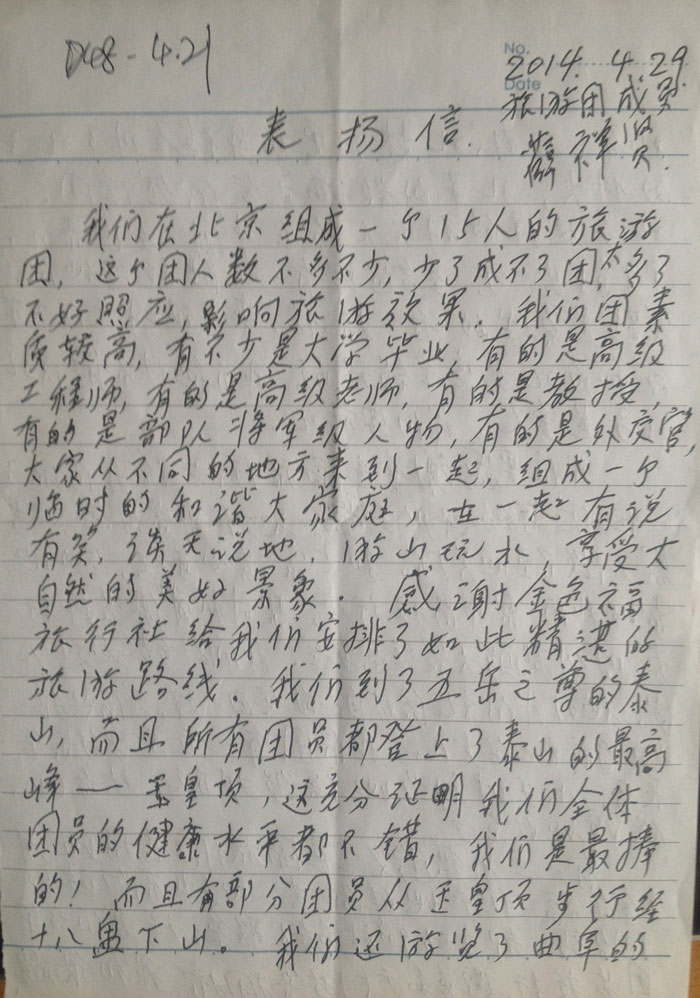 D48-4.21
No.
Date
2014. 4.29
旅游团成员
祥贤.
表扬信.
我们在北京组成一个15人的旅游
团，这个团人数不多不少，少了成不了团，太多了
不好照应，影响旅游效果。我们团素
质较高，有不少是大学毕业，有的是高级
工程师，有的是高级老师，有的是教授，
有的是部队将军级人物，有的是外交官，
大家从不同的地方来到一起，组成一个
临时的和谐大家庭，在一起有说
有笑，谈天说地，游山玩水，享受大
自然的美好景象。感谢金色福
旅行社给我们安排了如此精湛的
旅游路线。我们到了五岳之尊的泰
山，而且所有团员都登上了泰山的最高
峰——玉皇顶，这充分证明我们全体
团员的健康水平都不错，我们是最捧
的！而且有部分团员从玉皇顶步行经
十八盘下山。我们还游览了曲阜的